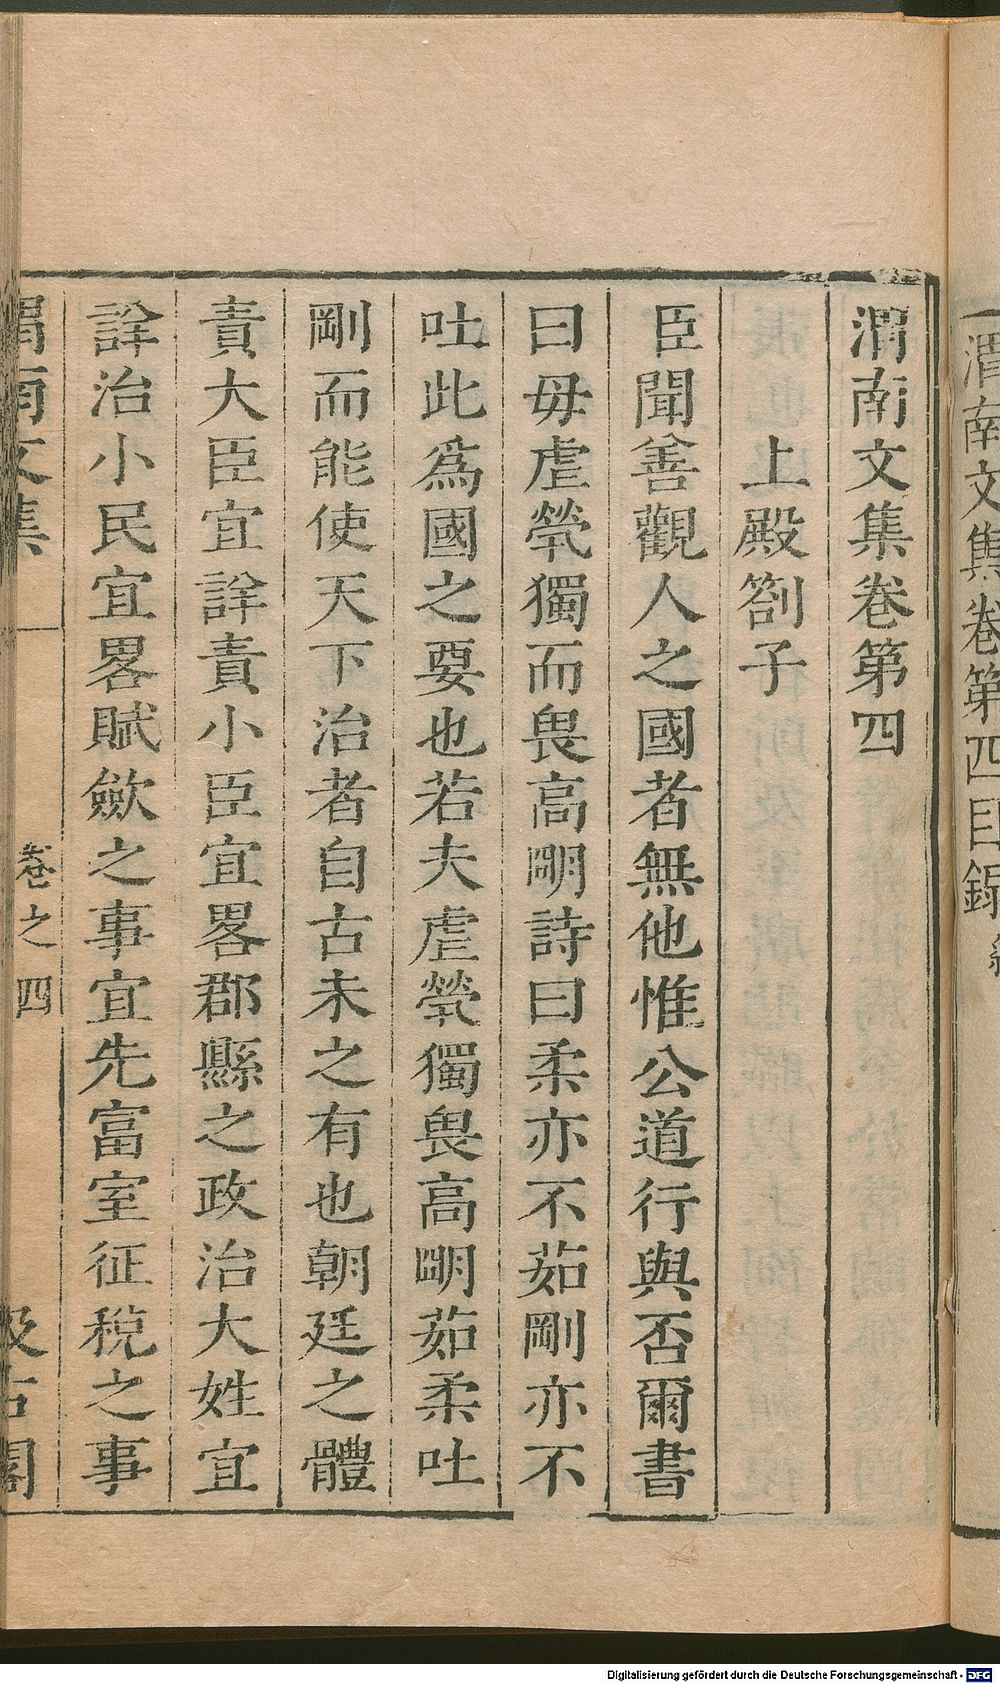 渭南文集卷第四目錄
渭南文集卷第四
上殿劄子
臣聞善觀人之國者無他惟公道行與否爾書
曰毋虐煢獨而畏高明詩曰柔亦不茹剛亦不
吐此爲國之要也若夫虐煢獨畏高明茹柔吐
剛而能使天下治者自古未之有也朝廷之體
責大臣宜詳責小臣宜畧郡縣之政治大姓宜
詳治小民宜畧賦歛之事宜先富室征稅之事
渭南文集
卷之四
汲古閣
Digitalisierung gefördert durch die Deutsche Forschungsgemeinschaft - DFG